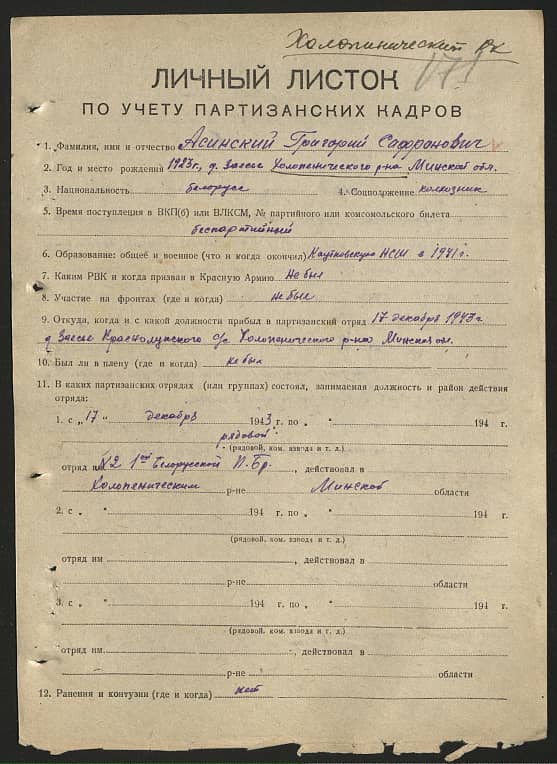 Холопинический рк
171
ЛИЧНЫЙ ЛИСТОК
ПО УЧЕТУ ПАРТИЗАНСКИХ КАДРОВ
1. Фамилия, имя и отчество Асинский Григорий Сафронович
2. Год и место рождения 1923 г, д. Заесье Холопенического р-на Минской обл.
3. Национальность белорусс 4. Соцположение колхозник
5. Время поступления в ВКП(б) или ВЛКСМ, № партийного или комсомольского билета
беспартийный
6. Образование: общее и военное (что и когда окончил) НСШ в 1941 г.
7. Каким РВК и когда призван в Красную Армию не был
8. Участие на фронтах (где и когда) не был
9. Откуда, когда и с какой должности прибыл в партизанский отряд 17 декабря 1943 г
д Заесье Краснолукского с/с Холопенического р-на Минской обл.
10. Был ли в плену (где и когда) не был
11. В каких партизанских отрядах (или группах) состоял, занимаемая должность и район действия
отряда:
1. с „ 17 " декабря 1943 г. по „ " 194 г.
рядовой
(рядовой, ком. взвода и т. д.)
отряд им №2 1ой Белорусской П. Бр. , действовал в
Холопеническим р-не Минской области
2. с „ " 194 г. по „ " 194 г.
(рядовой, ком. взвода и т. д.)
отряд им , действовал в
р-не области
3. с „ " 194 г. по „ " 194 г.
(рядовой, ком. взвода и т. д.)
отряд им. , действовал в
р-не области
12. Ранения и контузии (где и когда) нет